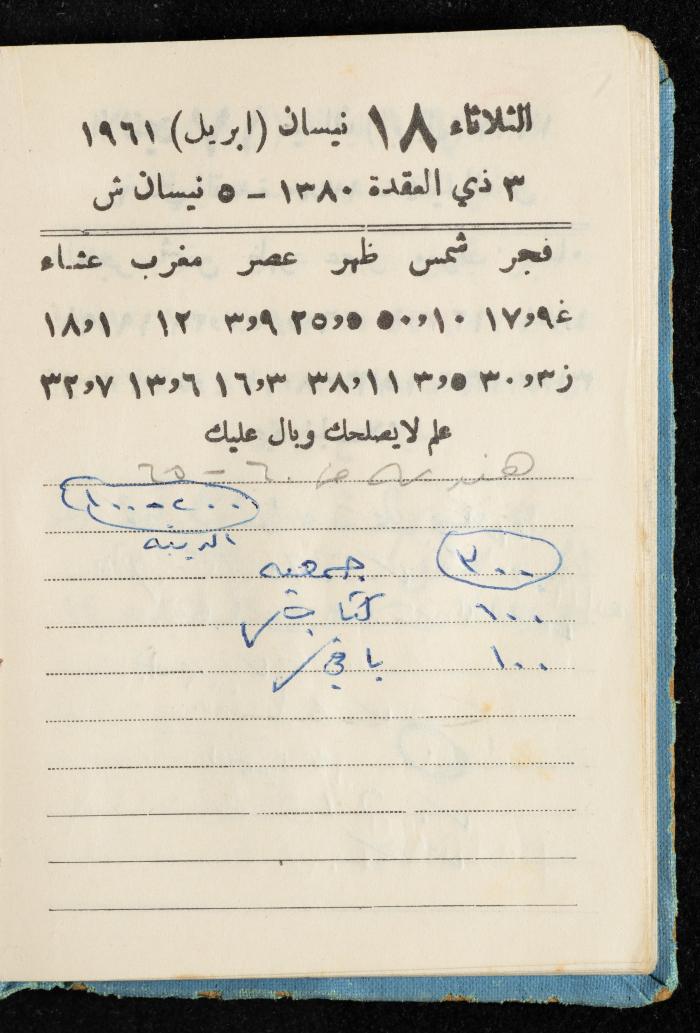 الثلاثاء ١٨ نيسان (ابريل) ١٩٦١
٣ ذي العقدة ١٣٨٠ – ٥ نيسان ش
فجر شمس ظهر عصر مغرب عشاء
غ ٩و١٧ ١٠و٥٠ ٥و٢٥ ٩و٣ ١٢ ١و١٨
ز ٣و٣٠ ٥و٣ ١١و٣٨ ٣و١٦ ٦و١٣ ٧و٣٢
علم لايصلحك وبال عليك
هندسة ص ٦٠ – ٦٥
٢٠٠ – ١٠٠
٣٠٠ جمعيه
١٠٠ كتابة
١٠٠ باقي